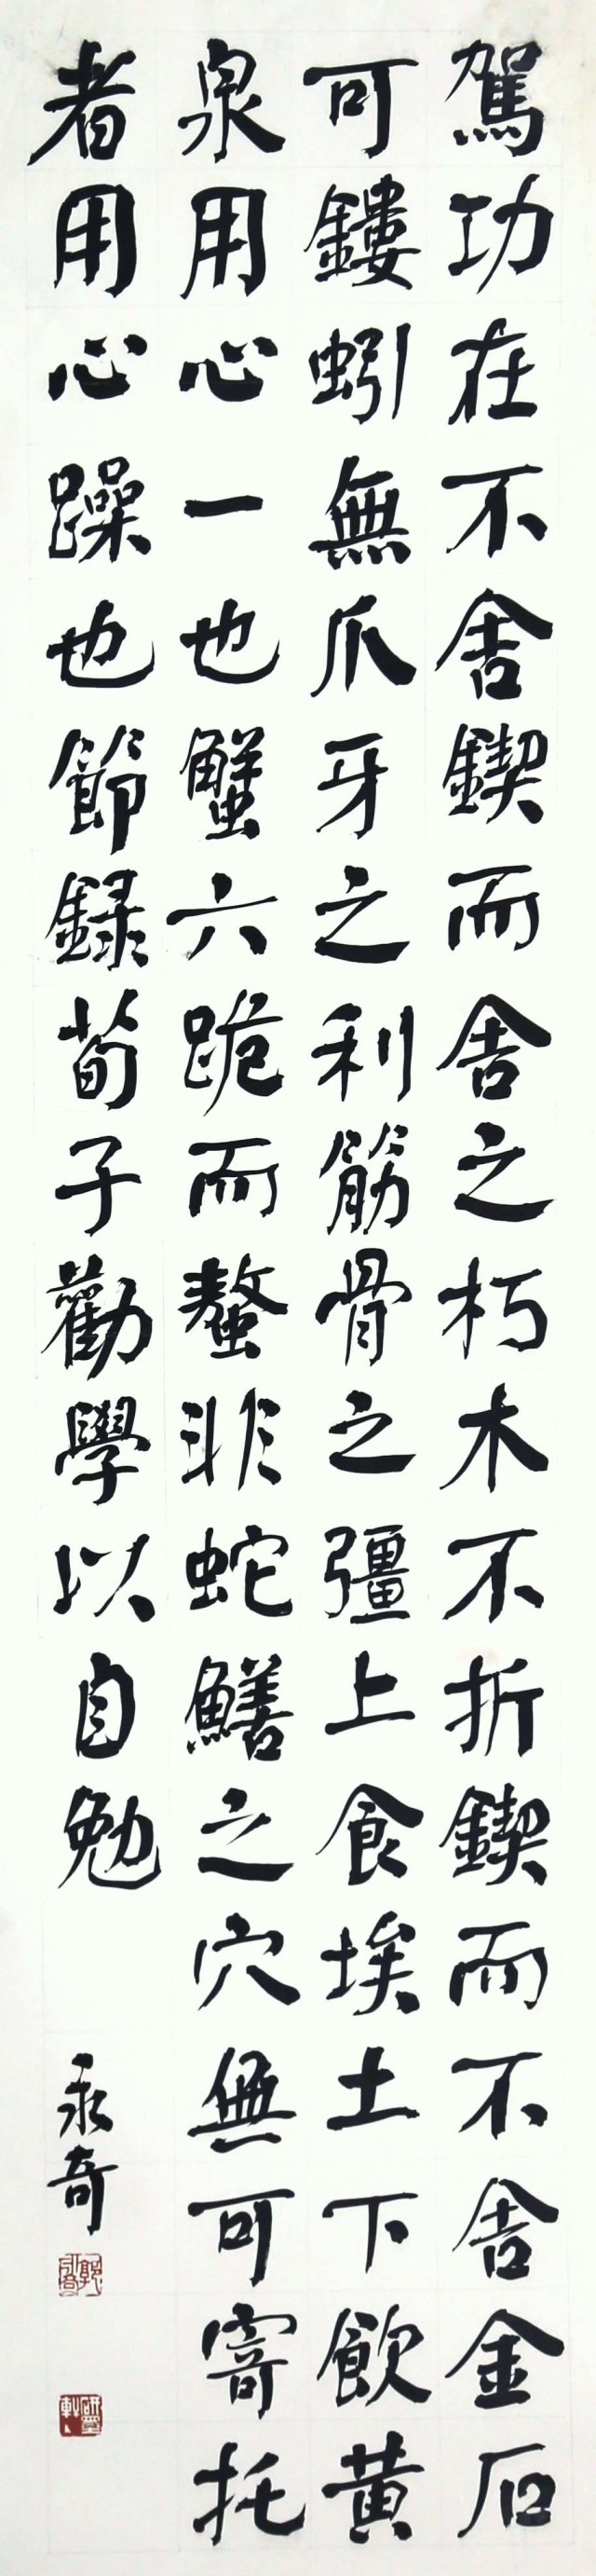 駕功在不舍鍥而舍之朽木不折鍥而不舍金石
可鏤蚓無爪牙之利筋骨之彊上食埃土下飲黄
泉用心一也蟹六跪而螯非蛇鱔之穴無可寄托
者用心躁也節録荀子勸學以自勉
永奇